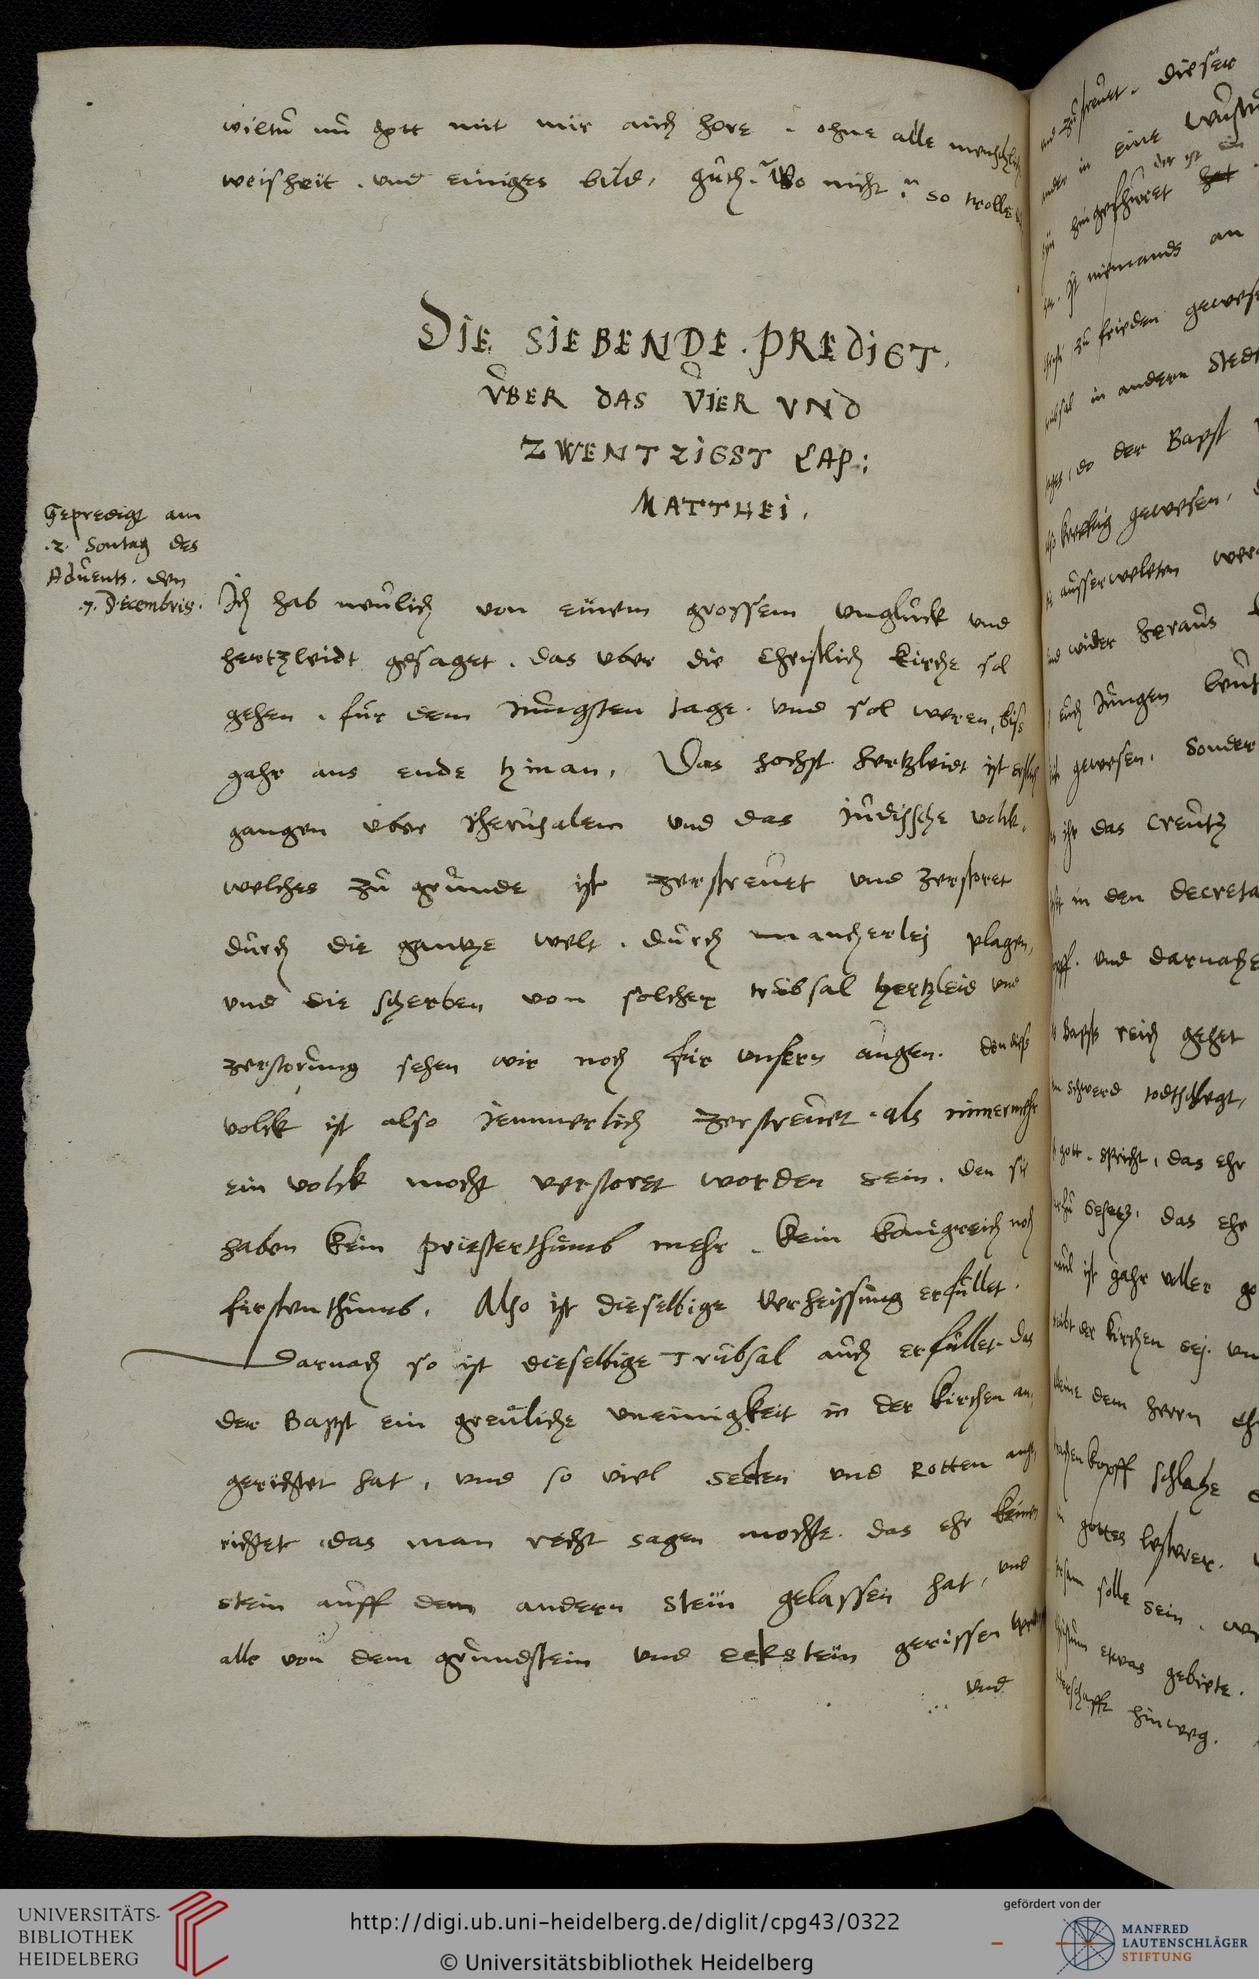 wiltu nu gott mit mir auch hore. ohne alle menschlich
weischeit. und einiges bild, guth. Wo nicht: so trolle
DIE SIEBENDE. PREDIGT.
ÜBER DAS VIER UND
ZWENTZIGST CAP:
MATTHEI.
Gepredigt am
.2. Sontag des
Advents. den
.7. Decembris.
Ich hab neulich von einem grossem unglück und
hertzleidt gesaget. das uber die Christlich kirche sol
gehen. für dem Jungsten tage. und sol weren, biss
gahr ans ende hinan, Das hochst hertzleidt ist erstlich
gangen uber Jherusalem und das Judissche volck.
welches zu grunde ist zerstreuet und zerstoret
durch die gantze welt. durch mancherlej plagen,
und die scherben von solcher trubsal hertzleid und
zerstorung sehen wir noch für unsern augen. den diss
volck ist also Jemmerlich zerstreuet. als nimermehr
ein volck mocht verstoret worden sein. den sie
haben kein priesterthumb mehr. kein konigreich noch
furstenthumb. Also ist dieselbige verheissung erfullet.
Darnach so ist dieselbige Trübsal auch erfullet. das
der Bapst ein greuliche uneinigkeit in der kirchen an,
gerichtet hat, und so viel secten und Rotten ange,
richtet, das man recht sagen mochte. das ehr keinen
stein auff dem andern stein gelassen hat, und
alle von dem grundstein und eckstein gerissen
und
dieser
in eine
der ist ein
hingefhuret hat
ist niemands an
zu frieden
in andern
do der Bapst
gewesen,
ausserweleten
wider heraus
euch Jungen
gewesen. Sonder
ihr das Creutz
in den decreta
und darnache
Bapsts reich gehet
schwerd todtschlegt,
gott. spricht, das ehr
das ehr
ist gahr voller
der kirchen sej.
dem herrn
kopff schlahe
gottes lesterer.
solle sein.
etwas gebiete.
hinweg.
UNIVERSITÄTS-
BIBLIOTHEK
HEIDELBERG
http://digi.ub.uni-heidelberg.de/diglit/cpg43/0322
© Universitätsbibliothek Heidelberg
gefördert von der
MANFRED
LAUTENSCHLÄGER
STIFTUNG